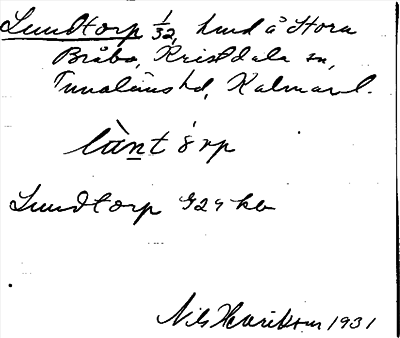 Lundtorp 1/32, hmd å Stora
Bråbo, Kristdala sn,
Tunaläns hd, Kalmar l.
làntörp
Lundtorp G29 kb
Nils Henrikson 1931